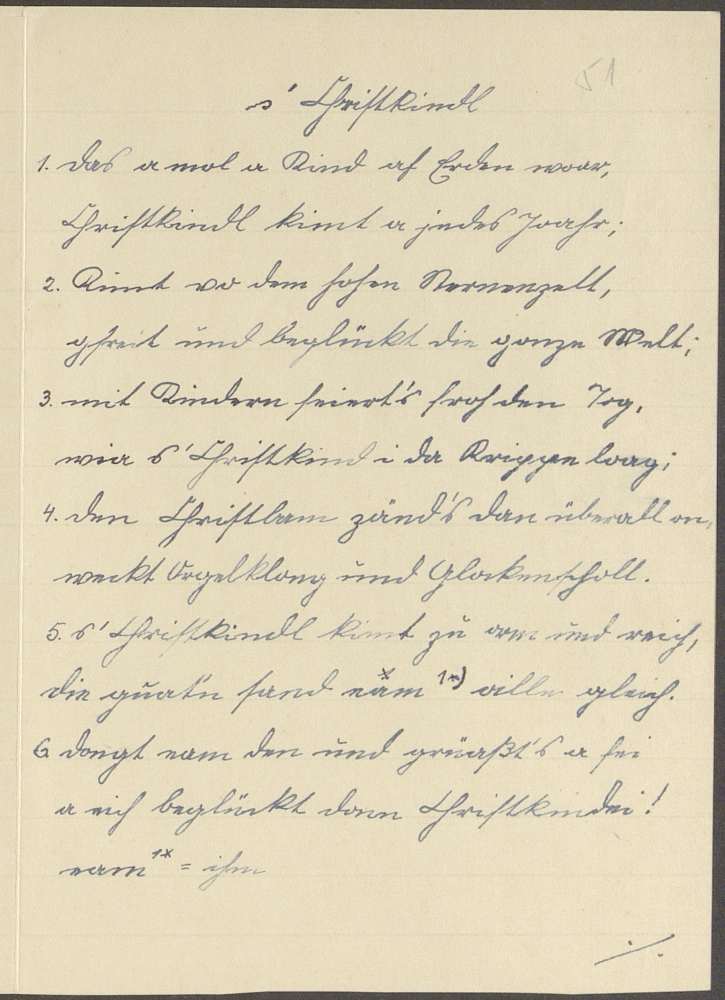 51
s' Christkindl
1. Das amol a Kind af Erden woar,
Christkindl kimt a jedes Joahr;
2. Kimt vo dem hohen Sternenzelt,
gfreit und beglückt die gonze Welt;
3. mit Kindern feiert's froh den Tog,
wia s' Christkind i da Krippen loag;
4. den Christbam zünd's dan überall on,
weckt Orgelklong und Glockenscholl.
5. s' Christkindl kimt zu orm und reich,
die guat'n sand eam x 1x) oille gleich.
6. dongt eam den und grüaßt's a fei
a eich beglückt dann Christkindei!
eam 1x = ihm
./.